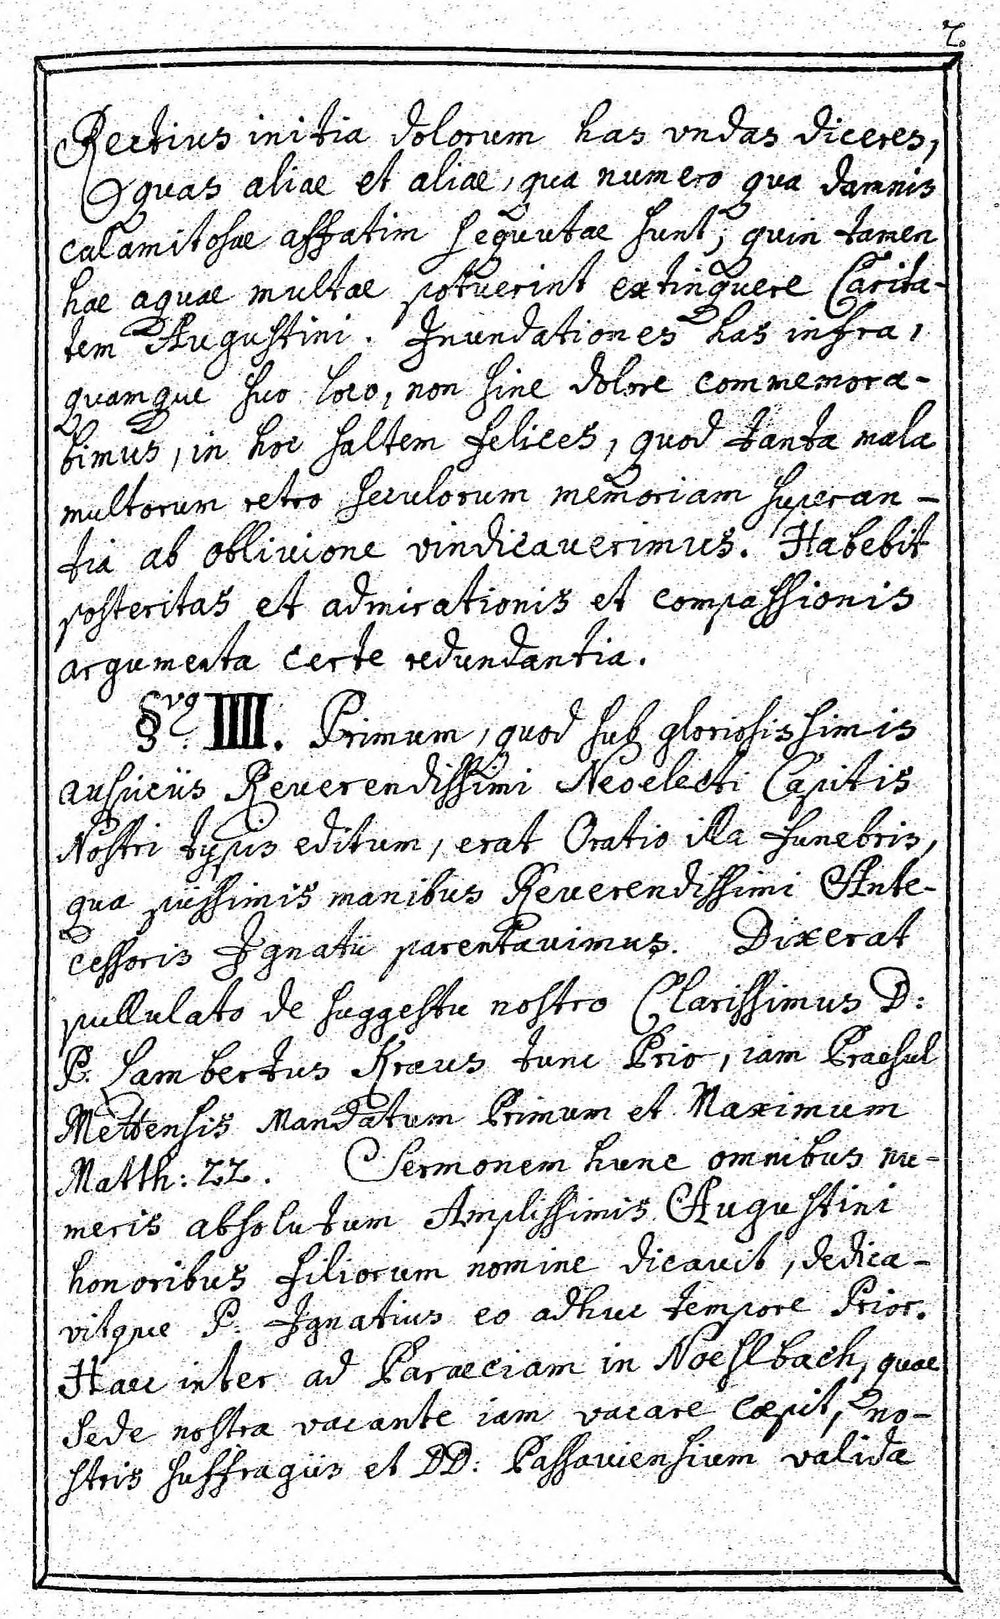 7.
Rectius initia dolorum has vndas diceres,
quas aliae et aliae, qua numero qua damnis
calamitosae affatim sequutae sunt, quin tamen
hae aquae multae potuerint extinquere Carita-
tem Augustini. Inundationes has infra,
quamque suo loco, non sine dolore commemora-
bimus, in hoc saltem felices, quod tanta mala
multorum retro seculorum memoriam superan-
tia ab oblivione vindicaverimus. Habebit
posteritas et admirationis et compassionis
argumenta certe redundantia.
§vg IIII. Primum, quod sub gloriosissimis
auspiciis Reverendissimi Neoelecti Capitis
Nostri typis editum, erat Oratio illa funebris,
qua piissimis manibus Reverendissimi Ante-
cessoris Ignatii parentavimus. Dixerat
pullulato de suggestu nostro Clarissimus D:
P. Lambertus Kraus tunc Prior, iam Praesul
Mettensis Mandatum Primum et Maximum
Matth: 22. Sermonem hunc omnibus nu-
meris absolutum Amplissimis Augustini
honoribus filiorum nomine dicavit, dedica-
vitque P. Ignatius eo adhuc tempore Prior.
Haec inter ad Paraeciam in Noeslbach, quae
Sede nostra vacante iam vacare coepit, no-
stris suffragiis et DD: Passaviensium valida